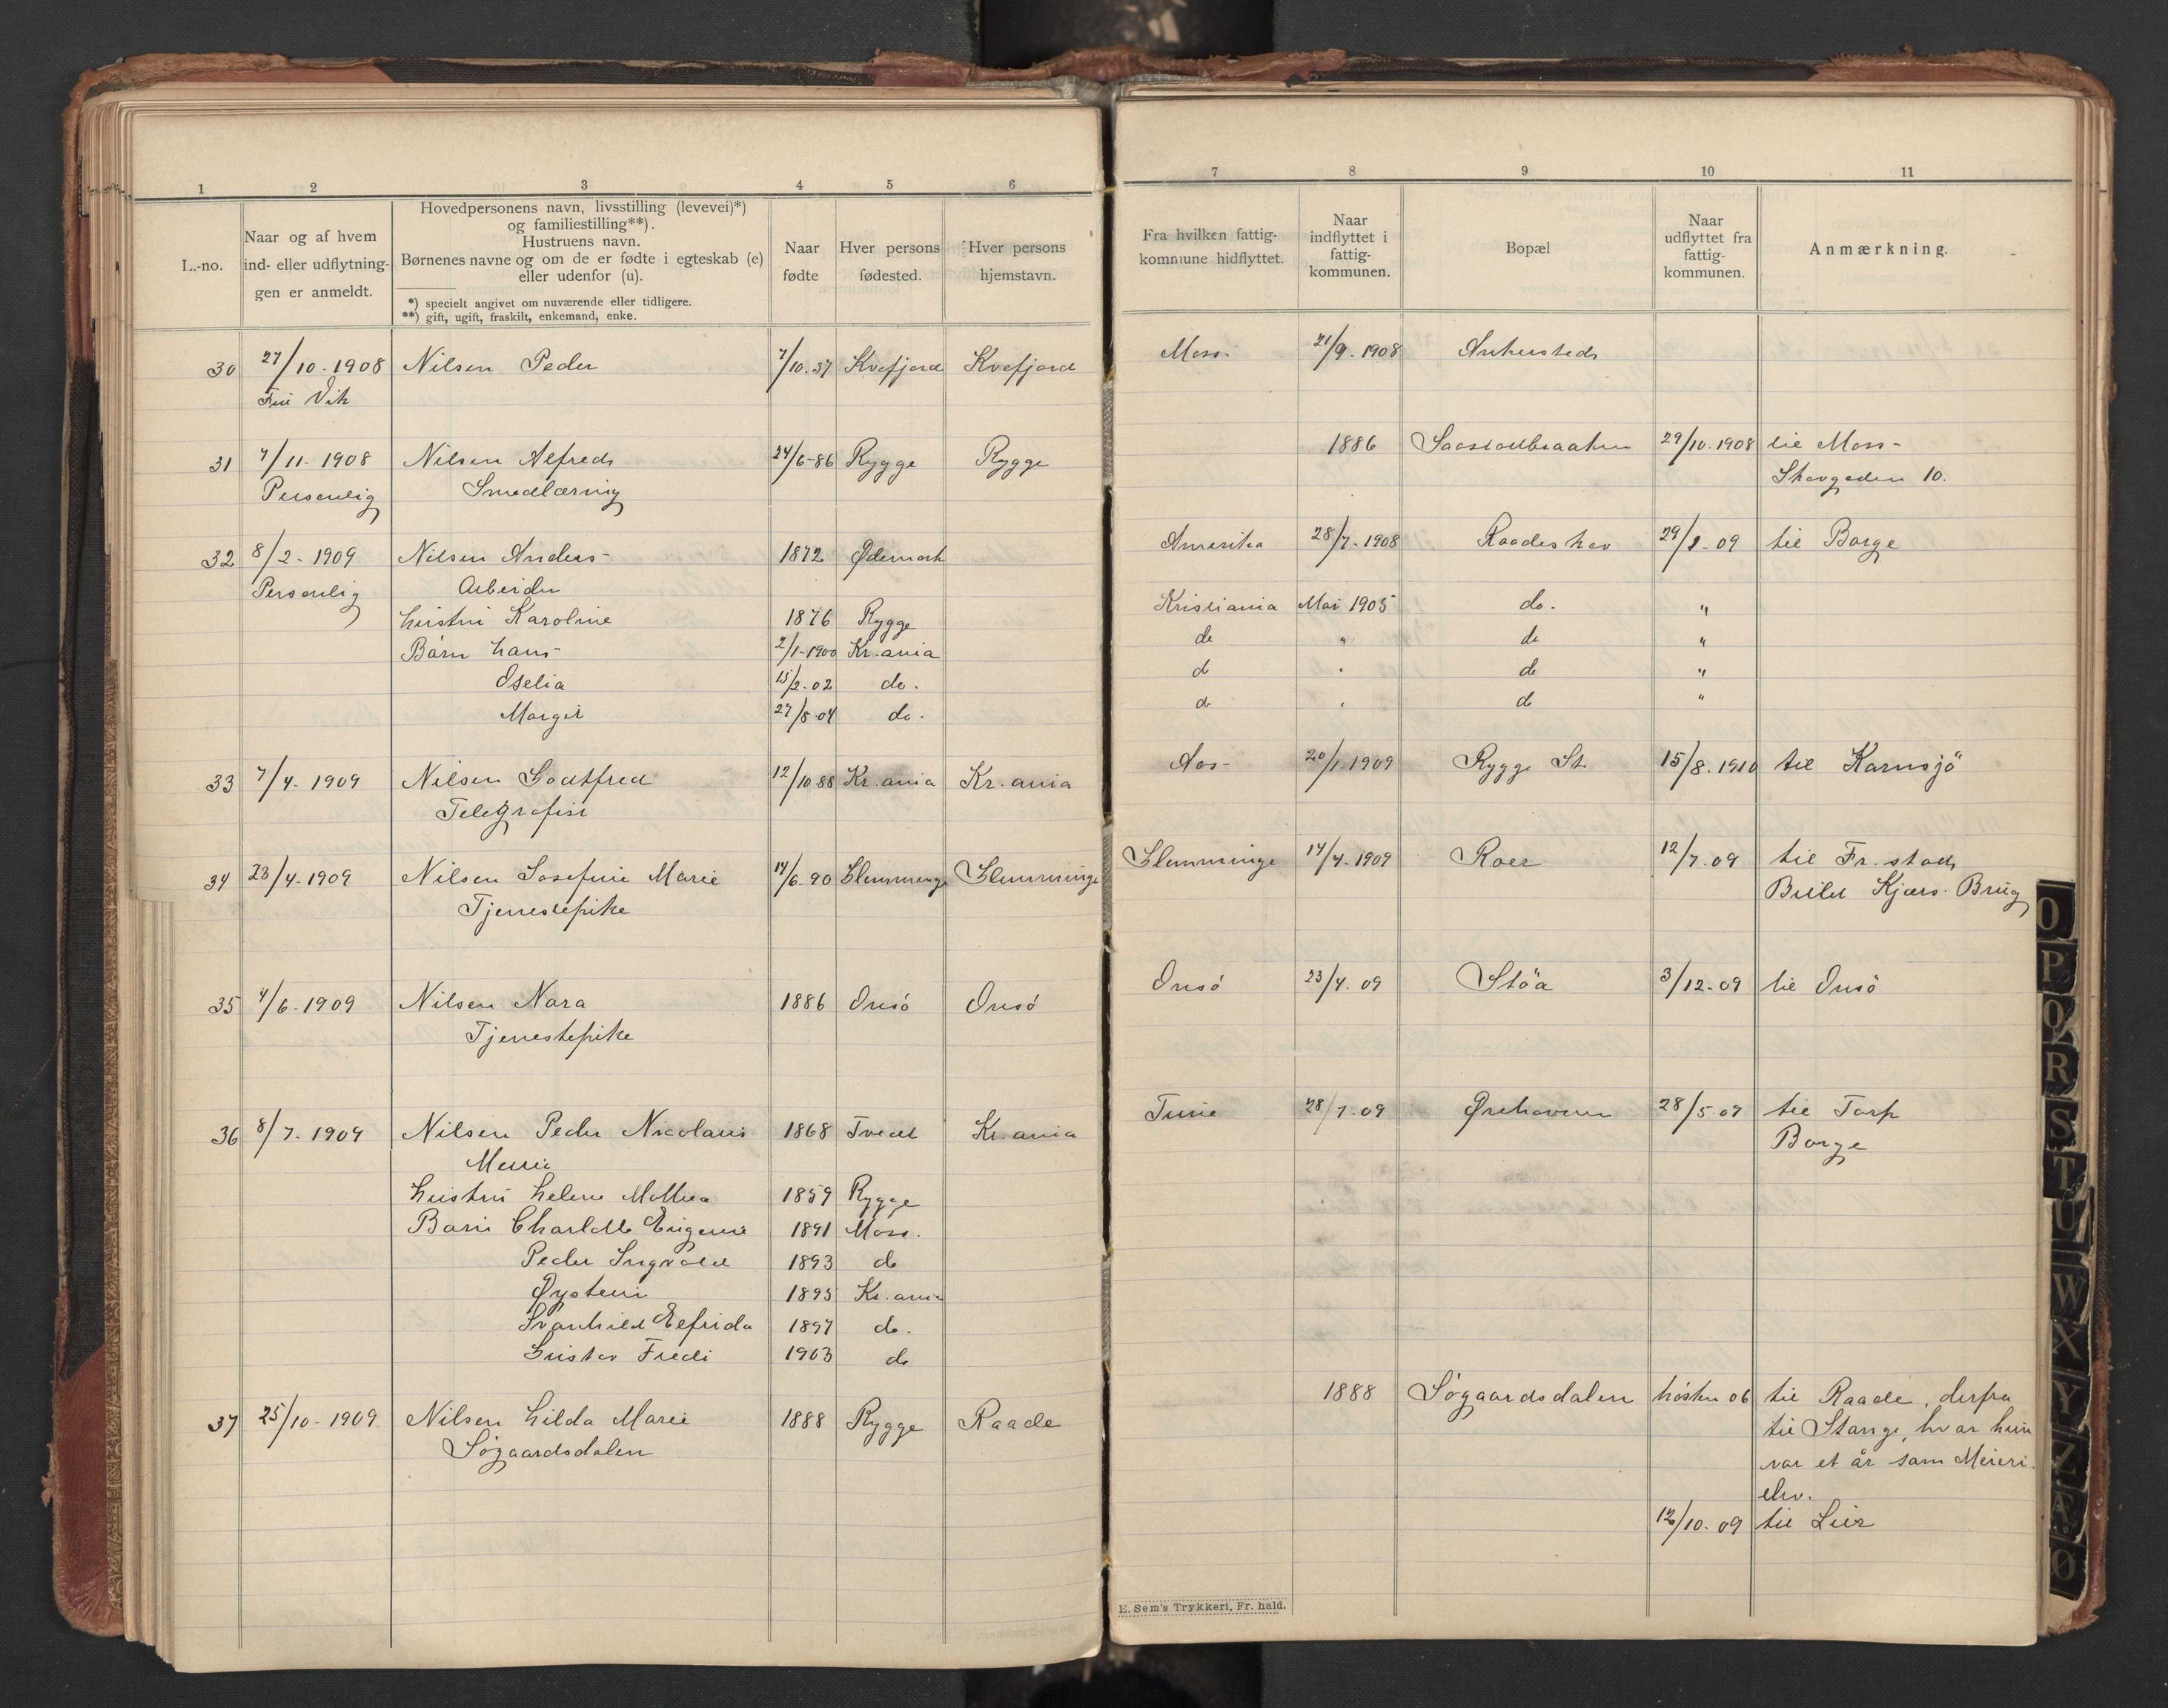 1 2 3 4 5 6
L.-no.
Naar og af hvem
ind- eller udflytnin-
gen er anmeldt.
Hovedpersonens navn, livsstilling (levevei)*)
og familiestilling**).
Hustruens navn.
Børnenes navne og om de er fødte i egteskab (e)
eller udenfor (u).
*) specielt angivet om nuværende eller tidligere.
**) gift, ugift, fraskilt, enkemand, enke.
Naar
fødte
Hver persons
fødested.
Hver persons
hjemstavn.
30 27/10-1908 Nilsen Peder 7/10.37 Kvefjord Kvefjord
Fru Vik
31 7/11-1908 Nilsen Alfred 24/6-86 Rygge Rygge
Personlig Smedlærling
32 8/2-1909 Nilsen Anders 1872 Ødemark
Personlig Arbeider
hustru Karoline 1876 Rygge
Børn hans 2/1-1900 Kr.ania
Oselia 15/2-02 do.
Margit 27/8-04 do.
33 7/4-1909 Nilsen Godtfred 12/10 88 Kr.ania Kr.ania
Telegrafist
34 23/4-1909 Nilsen Josefine Marie 14/6-90 Glemminge Glemminge
Tjenestepike
35 4/6-1909 Nilsen Nara 1886 Onsö Onsö
Tjenestepike
36 8/7-1909 Nilsen Peder Nicolaus 1868 Tvedt Kr.ania
hustru helene Mathea 1859 Rygge
Børn Charlotte Eugenie 1891 Moss.
Peder Ingvald 1893 do
Øystein 1895 Kr.ania
Svanhild Elfrida 1897 do.
Gustav Fredi 1903 do
37 25/10-1909 Nilsen hilda Marie 1888 Rygge Raade
Søgaardsdalen
7 8 9 10 11
Fra hvilken fattig-
kommune hidflyttet.
Naar
indflyttet i
fattig-
kommunen.
Bopæl
Naar
udflyttet fra
fattig-
kommunen.
Anmærkning.
Moss. 21/9-1908
1886 29/10-1908 til Moss-
Skovgaden 10.
Amerika 28/7-1908 29/1-09 til Borge
Kristiania Mai 1905 do. "
do " do "
do " do "
do " do "
Aas 20/1 1909 Rygge St. 15/8-1910 til Kornsjö
Glemminge 14/4-1909 Roer 12/7-09 til Fr.stad
Kjærs Brug
Onsö 23/4.09 Stöa 3/12-09 til Onsö
Tune 28/7-09 28/5-09 til Torp
Borge
1888 Søgaardsdalen høsten 06 til Raade, derfra
til Stange, hvor hun
var et år som Meieri-
elev.
12/10-09 til Lier
E. Sem's Trykkeri, Fr.hald.
O
P
Q
R
S
T
U
W
X
Y
Z
Ø